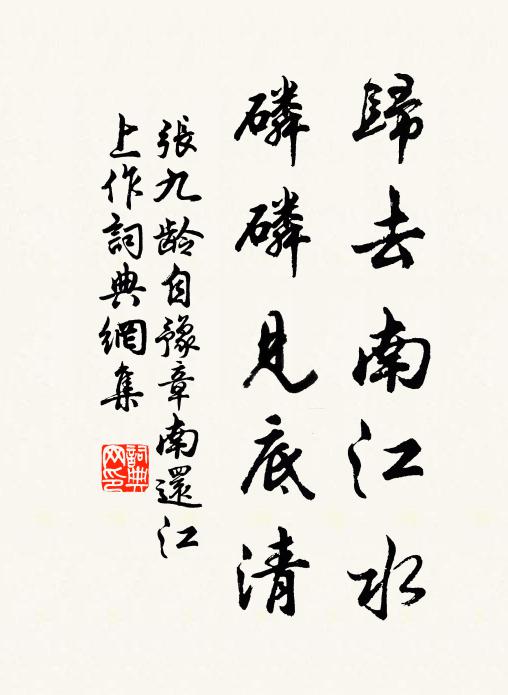 歸去南江水
磷磷見底清
張九齡自豫章南還江
上作詞典網集
詞典
网印